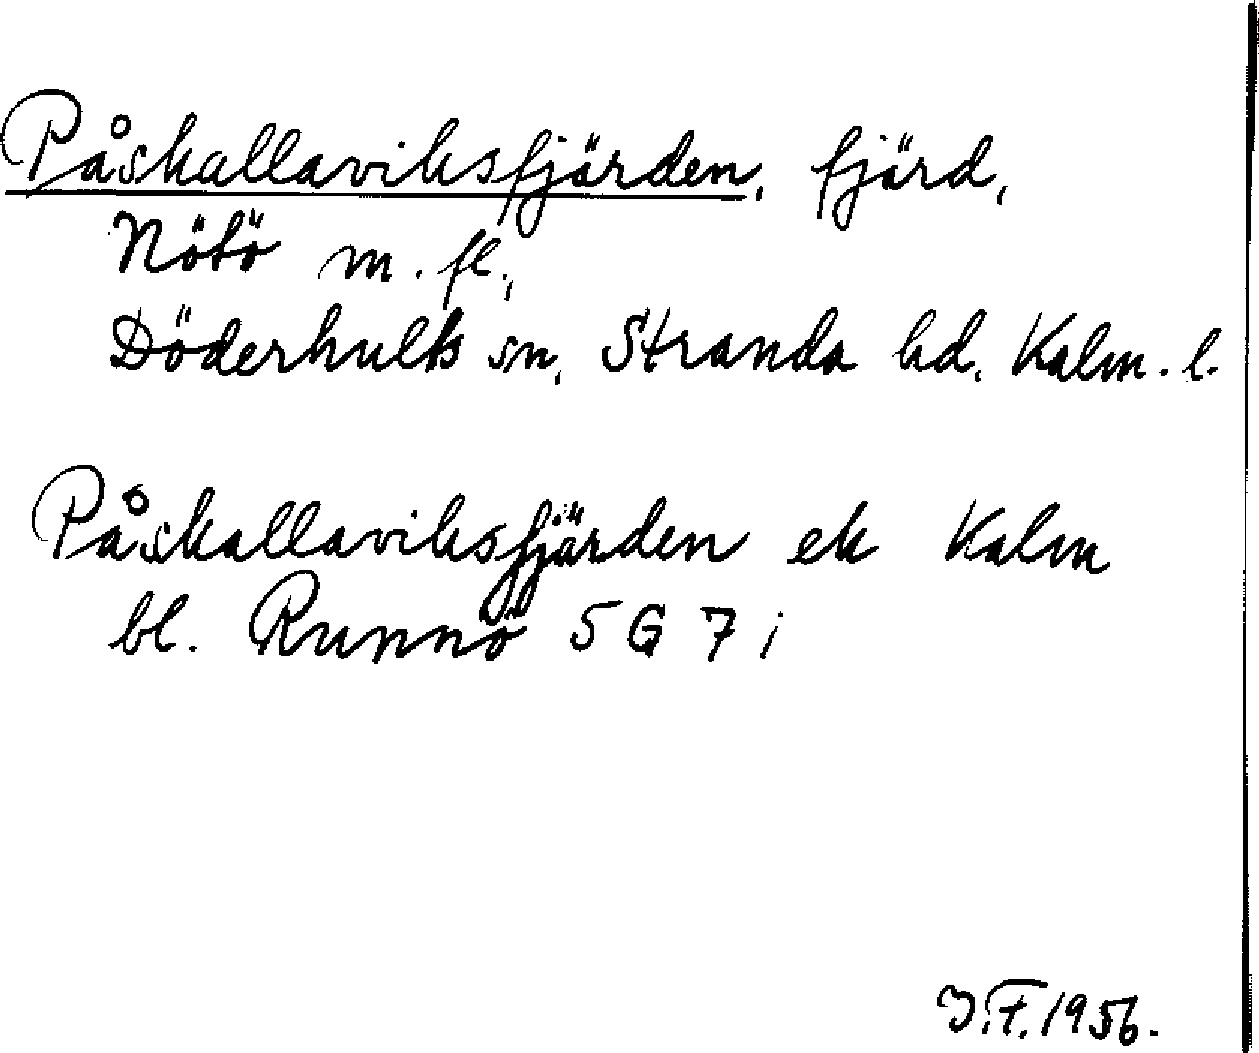 Påskallaviksfjärden, fjärd,
Nötö m. fl.,
Döderhults sn, Stranda hd, Kalm. l.
Påskallaviksfjärden ek Kalm
bl. Runnö 5 G 7 i
J.F. 1956.